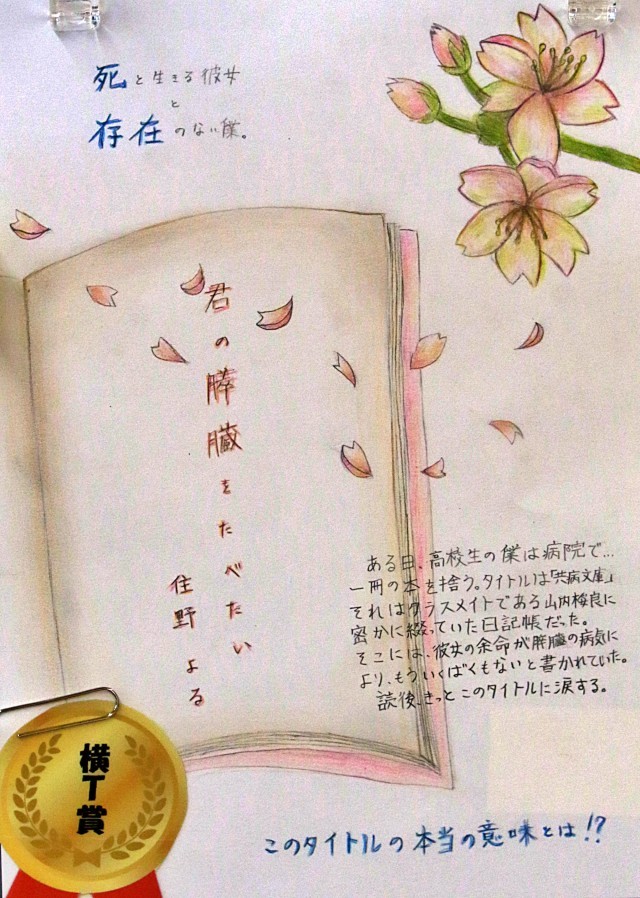 死と生きる彼女
と
存在のない僕。
君の膵臓をたべたい
住野よる
ある日、高校生の僕は病院で…
一冊の本を拾う。タイトルは「共病文庫」
それはクラスメイトである山内桜良に
密かに綴っていた日記帳だった。
そこには、彼女の余命が膵臓の病気に
より、もういくばくもないと書かれていた。
読後、きっとこのタイトルに涙する。
横T賞
このタイトルの本当の意味とは!?